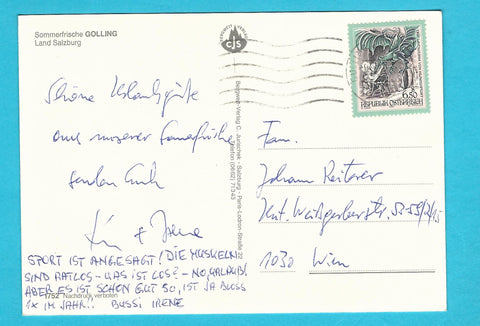 Sommerfrische GOLLING
Land Salzburg
Schöne Urlaubsgrüße
aus unserer Sommerfrische
senden Euch
+ Irene
SPORT IST ANGESAGT! DIE MUSKELN
SIND RATLOS - WAS IST LOS? - NO URLAUB!
ABER ES IST SCHON GUT SO, IST JA BLOSS
1x IM JAHR!. BUSSI IRENE
1752 Nachdruck verboten
cjs
Verlag C. Jurischek - Salzburg - Paris-Lodron-Straße 22
Telefon (0662) 71343
6.50
REPUBLIK ÖSTERREICH
Fam.
Johann Reiterer
Unt. Weißgerberstr. 53-59/2/15
1030 Wien